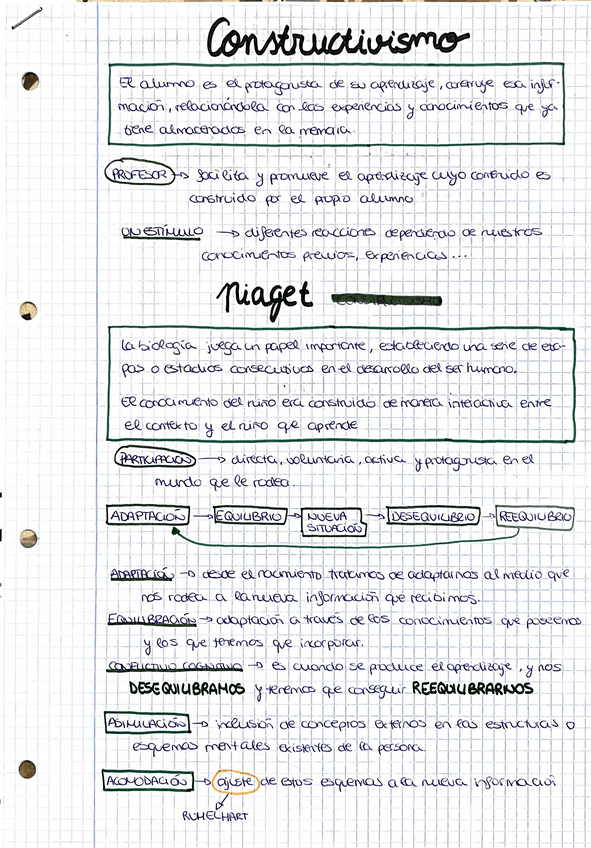 Constructivismo
El alumno es el protagonista de su aprendizaje, construye esa infor-
mación, relacionándola con las experiencias y conocimientos que ya
tiene almacenados en la memoria.
PROFESOR → facilita y promueve el aprendizaje cuyo contenido es
construido por el propio alumno
UN ESTÍMULO → diferentes reacciones dependiendo de nuestros
conocimientos previos, experiencias...
Piaget
La biología juega un papel importante, estableciendo una serie de eta-
pas o estadios consecutivos en el desarrollo del ser humano.
El conocimiento del niño era construido de manera interactiva entre
el contexto y el niño que aprende
PARTICIPACIÓN → directa, voluntaria, activa y protagonista en el
mundo que le rodea.
ADAPTACIÓN → EQUILIBRIO → NUEVA SITUACIÓN → DESEQUILIBRIO → REEQUILIBRIO
ADAPTACIÓN → desde el nacimiento tratamos de adaptarnos al medio que
nos rodea a la nueva información que recibimos.
EQUILIBRACIÓN → adaptación a través de los conocimientos que poseemos
y los que tenemos que incorporar.
CONFLICTIVO COGNITIVO → es cuando se produce el aprendizaje, y nos
DESEQUILIBRAMOS y tenemos que conseguir REEQUILIBRARNOS
ASIMILACIÓN → inclusión de conceptos externos en las estructuras o
esquemas mentales existentes de la persona
ACOMODACIÓN → ajuste de estos esquemas a la nueva información
RUMELHART